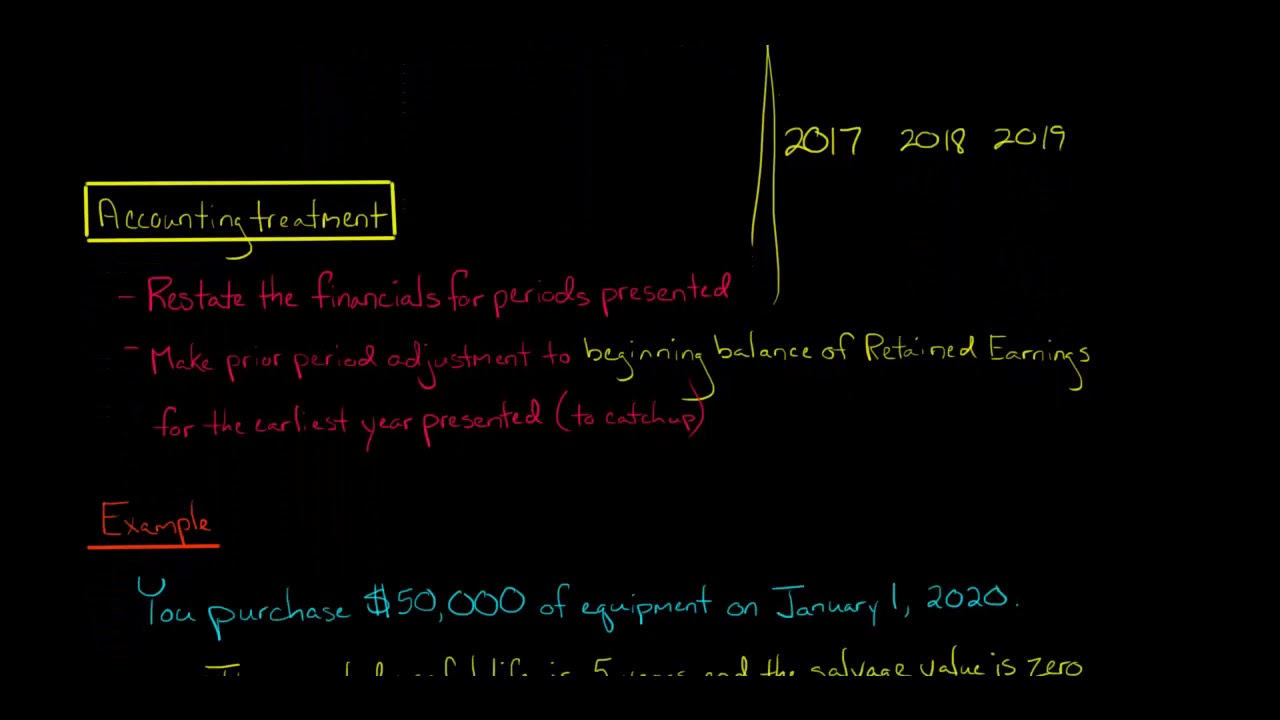 2017 2018 2019
Accounting treatment
- Restate the financials for periods presented
- Make prior period adjustment to beginning balance of Retained Earnings
for the earliest year presented (to catchup)
Example
You purchase $50,000 of equipment on January 1, 2020.
life is 5 years and the salvage value is zero